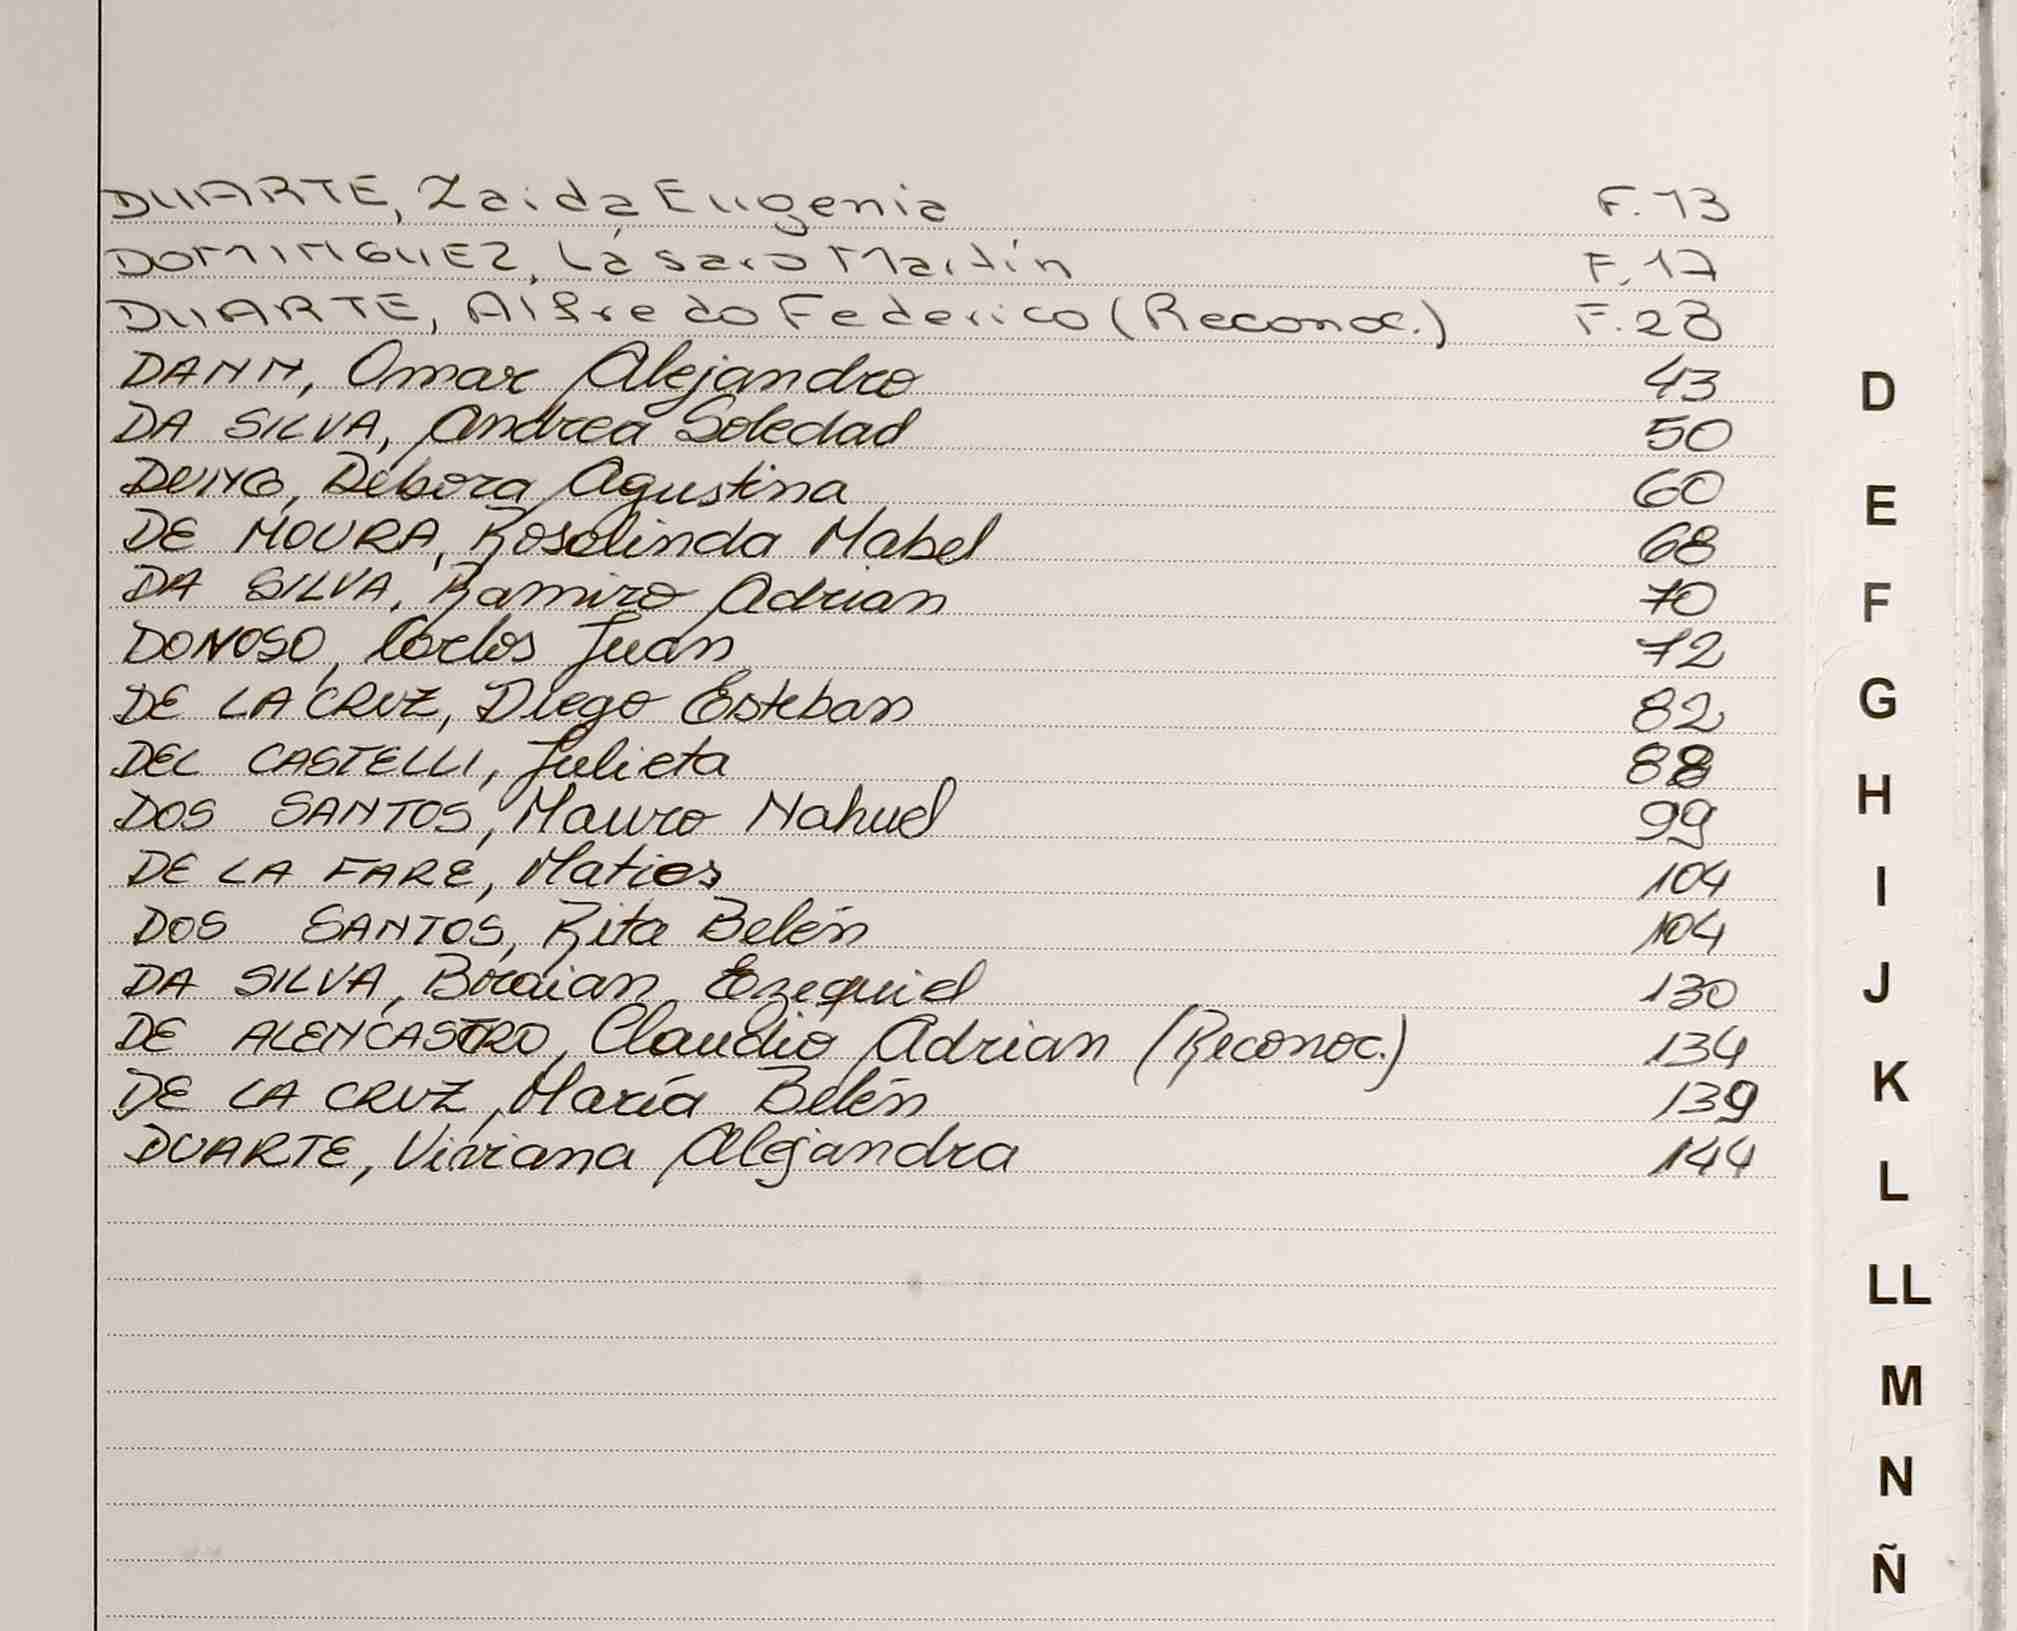 DUARTE, Zaida Eugenia F. 13
DOMINGUEZ, Lásaro Martín F. 17
DUARTE, Alfredo Federico (Reconoc.) F. 28
DANN, Omar Alejandro 43
DA SILVA, Andrea Soledad 50
Débora Agustina 60
DE MOURA, Rosalinda Mabel 68
DA SILVA, Ramiro Adrian 70
DONOSO, Carlos Juan 72
DE LA CRUZ, Diego Esteban 82
DEL CASTELLI, Julieta 88
DOS SANTOS, Mauro Nahuel 99
DE LA FARE, Matias 104
DOS SANTOS, Rita Belén 104
DA SILVA, Braian Ezequiel 130
DE ALENCASTRO, Claudio Adrian (Reconoc.) 134
DE LA CRUZ, María Belén 139
DUARTE, Viviana Alejandra 144
D
E
F
G
H
I
J
K
L
LL
M
N
Ñ